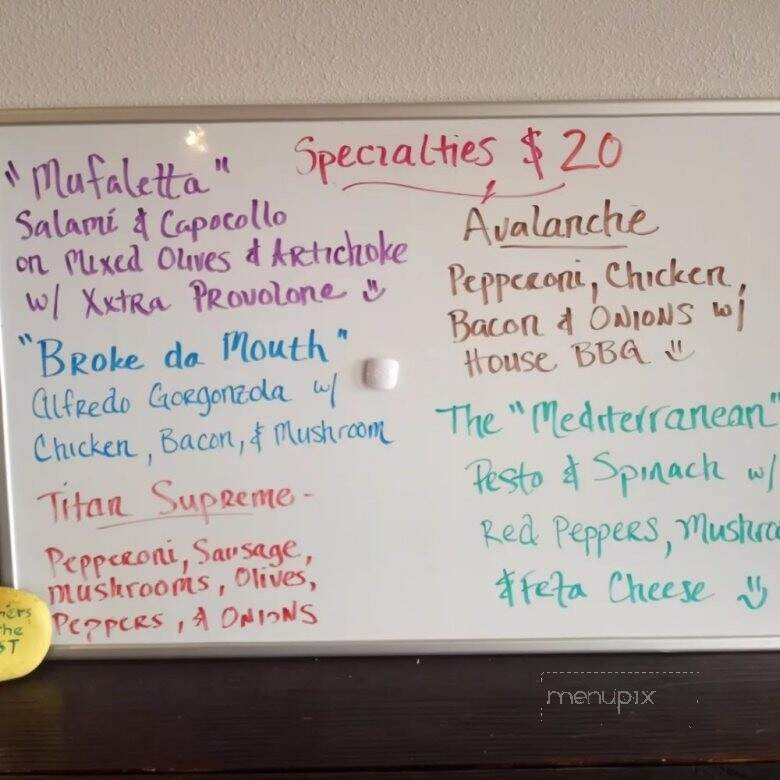 Specialties $20
"Mufaletta"
Salami & Capocollo
on Mixed Olives & Artichoke
w/ Xxtra Provolone
"Broke da Mouth"
Alfredo Gorgonzola w/
Chicken, Bacon, & Mushroom
Titan Supreme-
Pepperoni, Sausage,
mushrooms, Olives,
Peppers, & Onions
Avalanche
Pepperoni, Chicken,
Bacon & Onions w/
House BBQ
The "Mediterranean"
Pesto & Spinach w/
Red Peppers,
& Feta Cheese
menupix